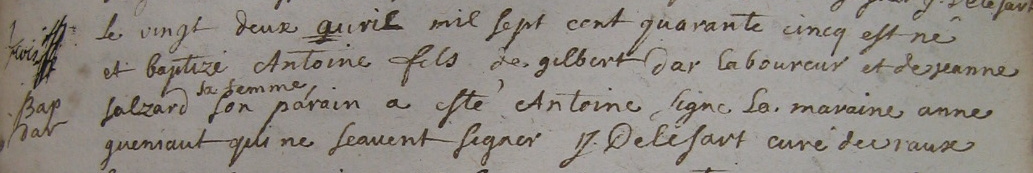 le vingt deux avril mil sept cent quarante cinq est né
et baptizé Antoine fils de gilbert dar laboureur et de jeanne
Bap
dar
salzard sa femme son parain a esté Antoine signe la maraine anne
gueniaut qui ne scavent signer J. Delesart curé de